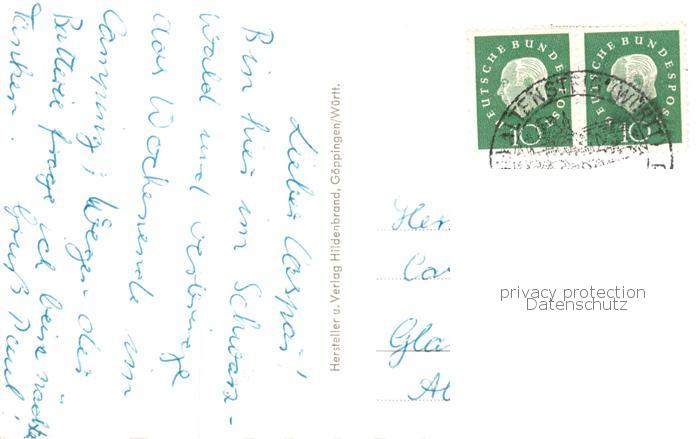 Lieber Caspar!
Bin hier im Schwarz-
wald und verbringe
das Wochenende im
Camping; Wegen der
Batterie frage ich beim nächsten
Tanken. Gruß Paul!
Hersteller u. Verlag Hildenbrand, Göppingen/Württ.
DEUTSCHE BUNDESPOST
10
DEUTSCHE BUNDESPOST
10
Her
Ca
Gla
privacy protection
Datenschutz